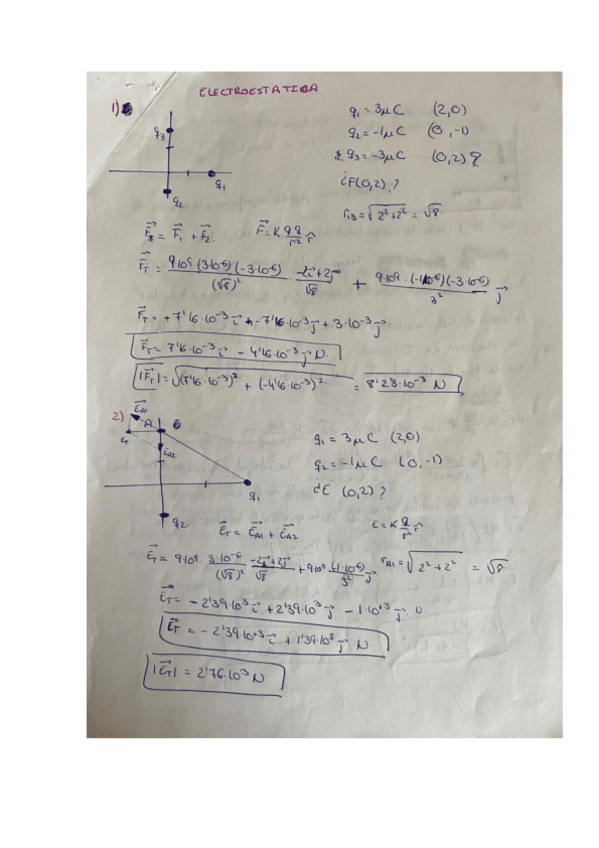 ELECTROESTATICA
1)
q₁ = 3μC (2,0)
q₂ = -1μC (0,-1)
q₃ = -3μC (0,2)
¿F(0,2)?
q₃
q₁
q₂
r₁₃ = √(2²+2²) = √8
F⃗₃ = F⃗₁ + F⃗₂ F⃗ = K q q / r² r̂
F⃗_T = 9·10⁹ (3·10⁻⁶)(-3·10⁻⁶) / (√8)² · (-2i⃗+2j⃗) / √8 + 9·10⁹·(-1·10⁻⁶)(-3·10⁻⁶) / 3² j⃗
F⃗_T = +7'16·10⁻³ i⃗ + -7'16·10⁻³ j⃗ + 3·10⁻³ j⃗
F⃗_T = 7'16·10⁻³ i⃗ - 4'16·10⁻³ j⃗ N
|F⃗_T| = √((7'16·10⁻³)² + (-4'16·10⁻³)²) = 8'28·10⁻³ N
2)
E⃗_A1
A
E_T
E_A2
q₁
q₂
q₁ = 3μC (2,0)
q₂ = -1μC (0,-1)
¿E (0,2)?
E⃗_T = E⃗_A1 + E⃗_A2 E = K q / r² r̂
E⃗_T = 9·10⁹ · 3·10⁻⁶ / (√8)² (-2i⃗+2j⃗) / √8 + 9·10⁹ (-1·10⁻⁶) / 3² j⃗ r_A1 = √(2²+2²) = √8
E⃗_T = -2'39·10³ i⃗ + 2'39·10³ j⃗ - 1·10⁺³ j⃗ N
E⃗_T = -2'39·10⁺³ i⃗ + 1'39·10³ j⃗ N
|E⃗_T| = 2'76·10³ N